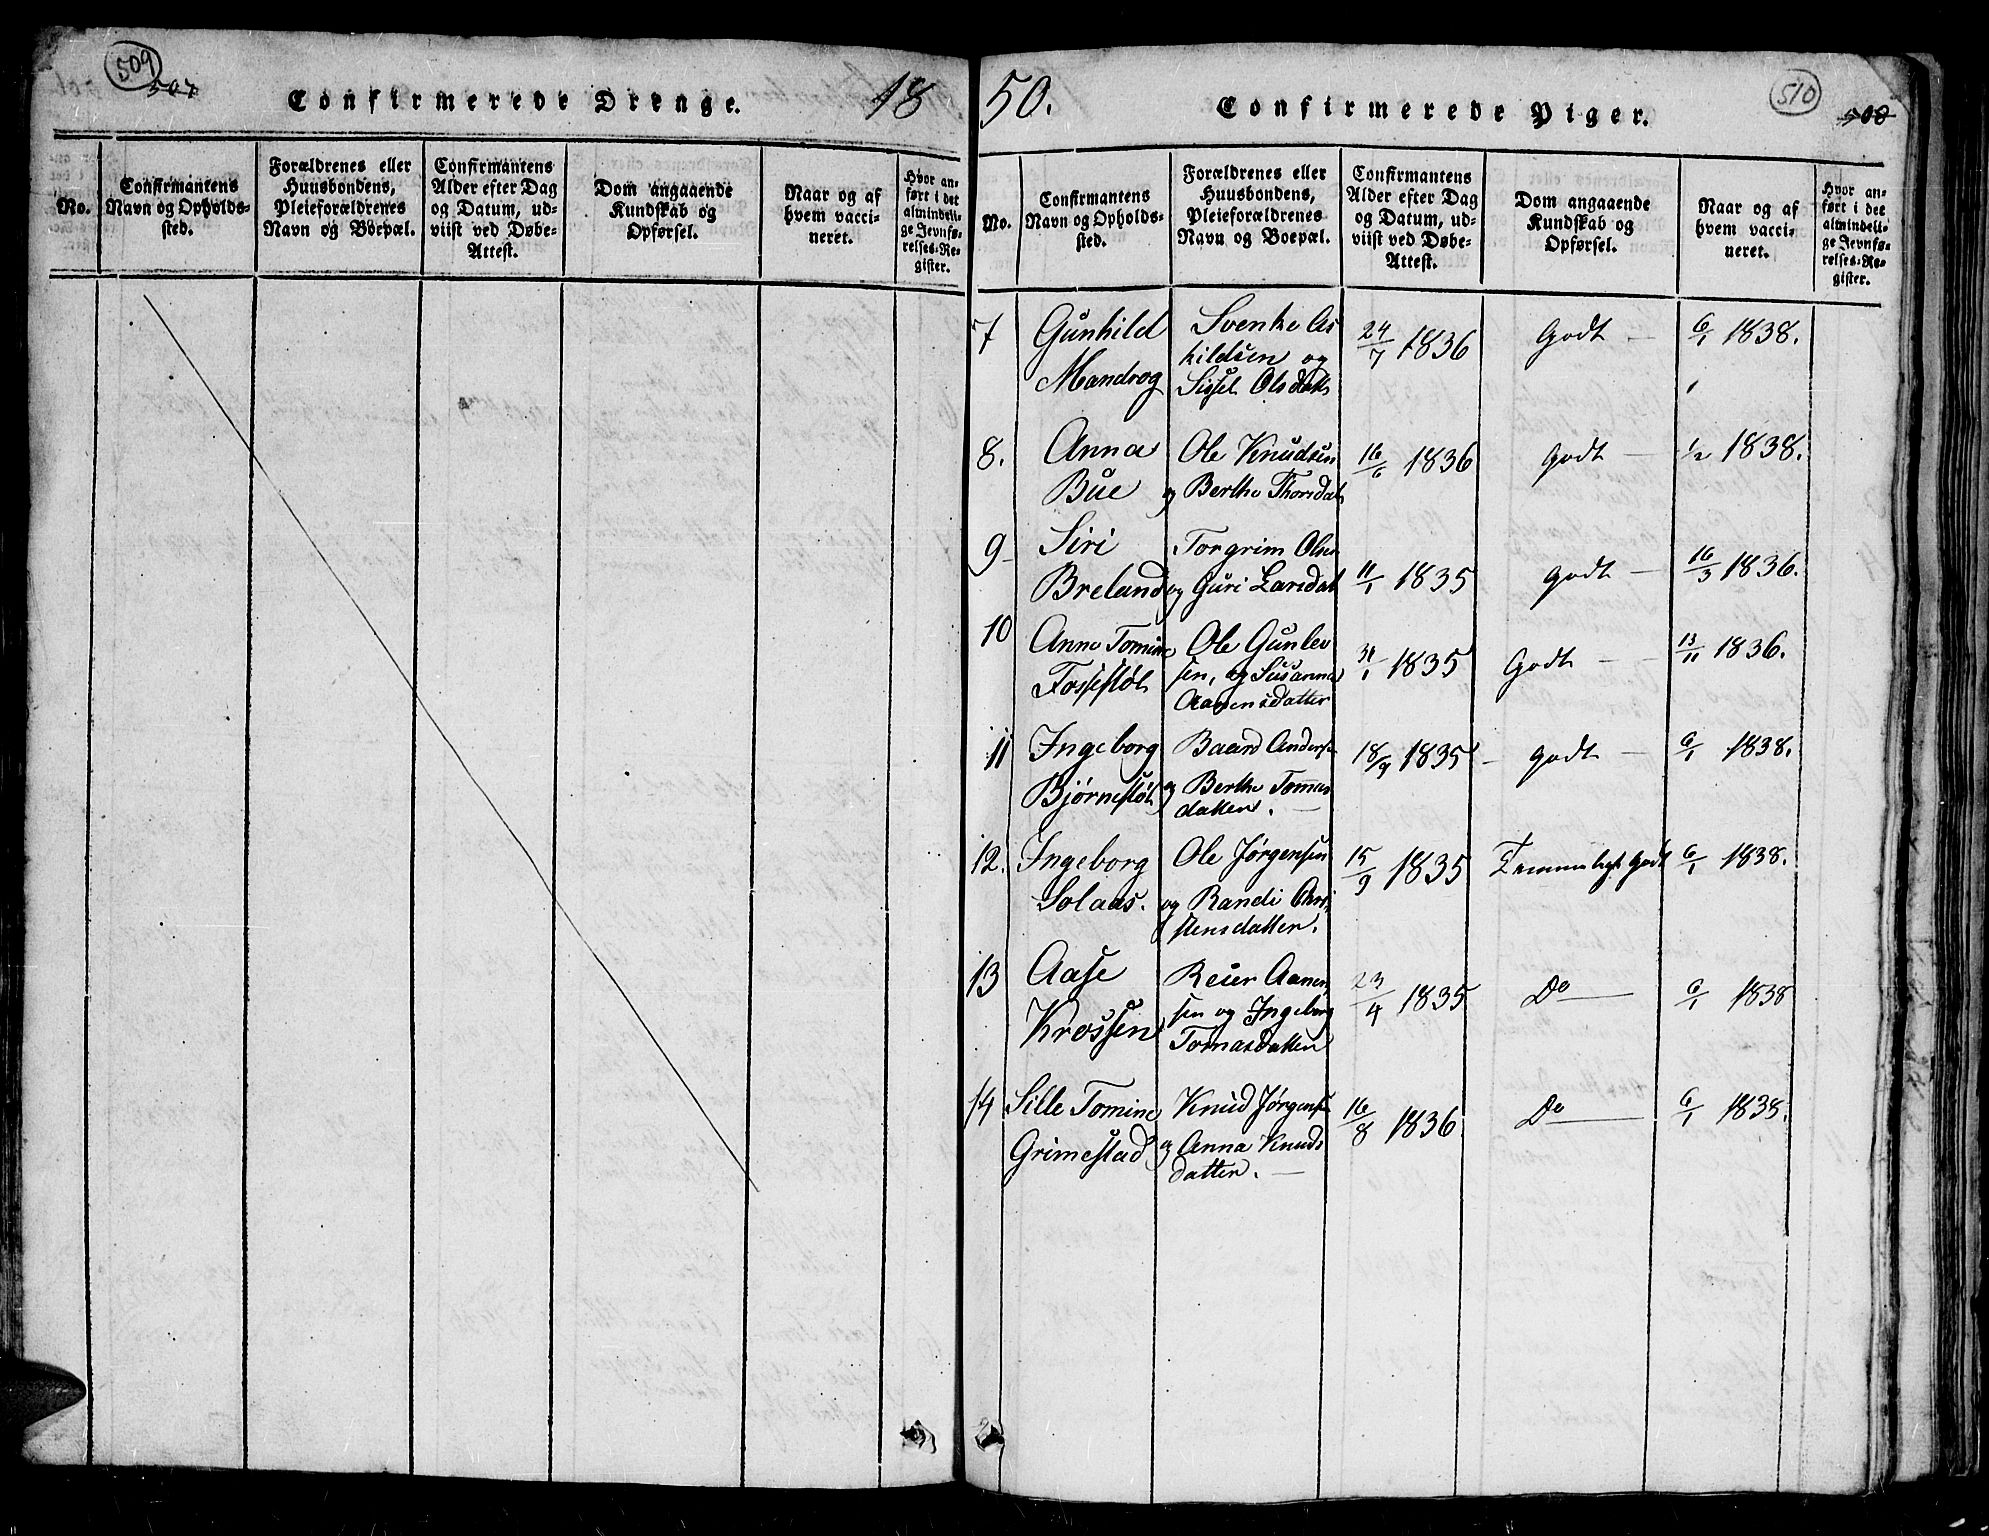 509
507
Confirmerede Drenge.
18
No.
Confirmantens
Navn og Opholds-
sted.
Forældrenes eller
Huusbondens,
Pleieforældrenes
Navn og Boepæl.
Confirmantens
Alder efter Dag
og Datum, ud-
viist ved Døbe-
Attest.
Dom angaaende
Kundskab og
Opførsel.
Naar og af
hvem vacci-
neret.
Hvor an-
ført i det
almindeli-
ge Jevnfø-
relses-Re-
gister.
50.
Confirmerede Piger.
510
508
No.
Confirmantens
Navn og Opholds-
sted.
Forældrenes eller
Huusbondens,
Pleieforældrenes
Navn og Boepæl.
Confirmantens
Alder efter Dag
og Datum, ud-
viist ved Døbe-
Attest.
Dom angaaende
Kundskab og
Opførsel.
Naar og af
hvem vacci-
neret.
Hvor an-
ført i det
almindeli-
ge Jevnfø-
relses-Re-
gister.
7
Gunhild
Mandrog
Svenke As
kildsen og
Sissel Olsdatt
24/7 1836
Godt
6/1 1838.
8.
Anna
Bue
Ole Knudsen
og Berthe Thorsdat
16/6 1836
godt
1/2 1838.
9
Siri
Breland
Torgrim Olsen
og Guri Larsdat
11/1 1835
godt
16/3 1836.
10
Anne Tomine
Fossestøl
Ole Gunlev
sen, og Susanna
Aanensdatter
31/1 1835
Godt
13/11 1836.
11
Ingeborg
Bjørnestøl
Baard Anders
og Berthe Tomas
datter.
18/9 1835
godt
6/1 1838.
12.
Ingeborg
Solaas.
Ole Jørgensen
og Randi Chri
stensdatter.
15/9 1835
Temmeligt godt
6/1 1838.
13
Aase
Krossen
Reier Aanen
sen og Ingeborg
Tomasdatter
23/4 1835
Do
6/1 1838
14
Sille Tomine
Grimestad
Knud Jørgens
og Anna Knuds
datter.
16/8 1836
Do
6/1 1838.